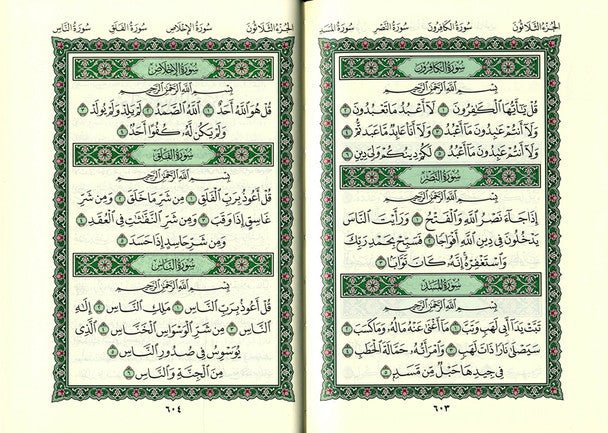 الجزء الثلاثون سورة الكافرون سورة النصر سورة المسد
سُورَةُ الكافِرُون
بِسْمِ اللَّهِ الرَّحْمَٰنِ الرَّحِيمِ
قُلْ يَٰٓأَيُّهَا ٱلْكَٰفِرُونَ ١ لَآ أَعْبُدُ مَا تَعْبُدُونَ ٢
وَلَآ أَنتُمْ عَٰبِدُونَ مَآ أَعْبُدُ ٣ وَلَآ أَنَا۠ عَابِدٌ مَّا عَبَدتُّمْ ٤
وَلَآ أَنتُمْ عَٰبِدُونَ مَآ أَعْبُدُ ٥ لَكُمْ دِينُكُمْ وَلِيَ دِينِ ٦
سُورَةُ النَّصْر
بِسْمِ اللَّهِ الرَّحْمَٰنِ الرَّحِيمِ
إِذَا جَآءَ نَصْرُ ٱللَّهِ وَٱلْفَتْحُ ١ وَرَأَيْتَ ٱلنَّاسَ
يَدْخُلُونَ فِى دِينِ ٱللَّهِ أَفْوَاجًا ٢ فَسَبِّحْ بِحَمْدِ رَبِّكَ
وَٱسْتَغْفِرْهُ إِنَّهُۥ كَانَ تَوَّابًۢا ٣
سُورَةُ المَسَد
بِسْمِ اللَّهِ الرَّحْمَٰنِ الرَّحِيمِ
تَبَّتْ يَدَآ أَبِى لَهَبٍ وَتَبَّ ١ مَآ أَغْنَىٰ عَنْهُ مَالُهُۥ وَمَا كَسَبَ
٢ سَيَصْلَىٰ نَارًا ذَاتَ لَهَبٍ ٣ وَٱمْرَأَتُهُۥ حَمَّالَةَ ٱلْحَطَبِ
٤ فِى جِيدِهَا حَبْلٌ مِّن مَّسَدٍۭ ٥
٦٠٣
الجزء الثلاثون سورة الإخلاص سورة الفلق سورة الناس
سُورَةُ الإِخْلَاص
بِسْمِ اللَّهِ الرَّحْمَٰنِ الرَّحِيمِ
قُلْ هُوَ ٱللَّهُ أَحَدٌ ١ ٱللَّهُ ٱلصَّمَدُ ٢ لَمْ يَلِدْ وَلَمْ يُولَدْ ٣
وَلَمْ يَكُن لَّهُۥ كُفُوًا أَحَدٌۢ ٤
سُورَةُ الفَلَق
بِسْمِ اللَّهِ الرَّحْمَٰنِ الرَّحِيمِ
قُلْ أَعُوذُ بِرَبِّ ٱلْفَلَقِ ١ مِن شَرِّ مَا خَلَقَ ٢ وَمِن شَرِّ
غَاسِقٍ إِذَا وَقَبَ ٣ وَمِن شَرِّ ٱلنَّفَّٰثَٰتِ فِى ٱلْعُقَدِ ٤
وَمِن شَرِّ حَاسِدٍ إِذَا حَسَدَ ٥
سُورَةُ النَّاس
بِسْمِ اللَّهِ الرَّحْمَٰنِ الرَّحِيمِ
قُلْ أَعُوذُ بِرَبِّ ٱلنَّاسِ ١ مَلِكِ ٱلنَّاسِ ٢ إِلَٰهِ
ٱلنَّاسِ ٣ مِن شَرِّ ٱلْوَسْوَاسِ ٱلْخَنَّاسِ ٤ ٱلَّذِى
يُوَسْوِسُ فِى صُدُورِ ٱلنَّاسِ ٥
مِنَ ٱلْجِنَّةِ وَٱلنَّاسِ ٦
٦٠٤